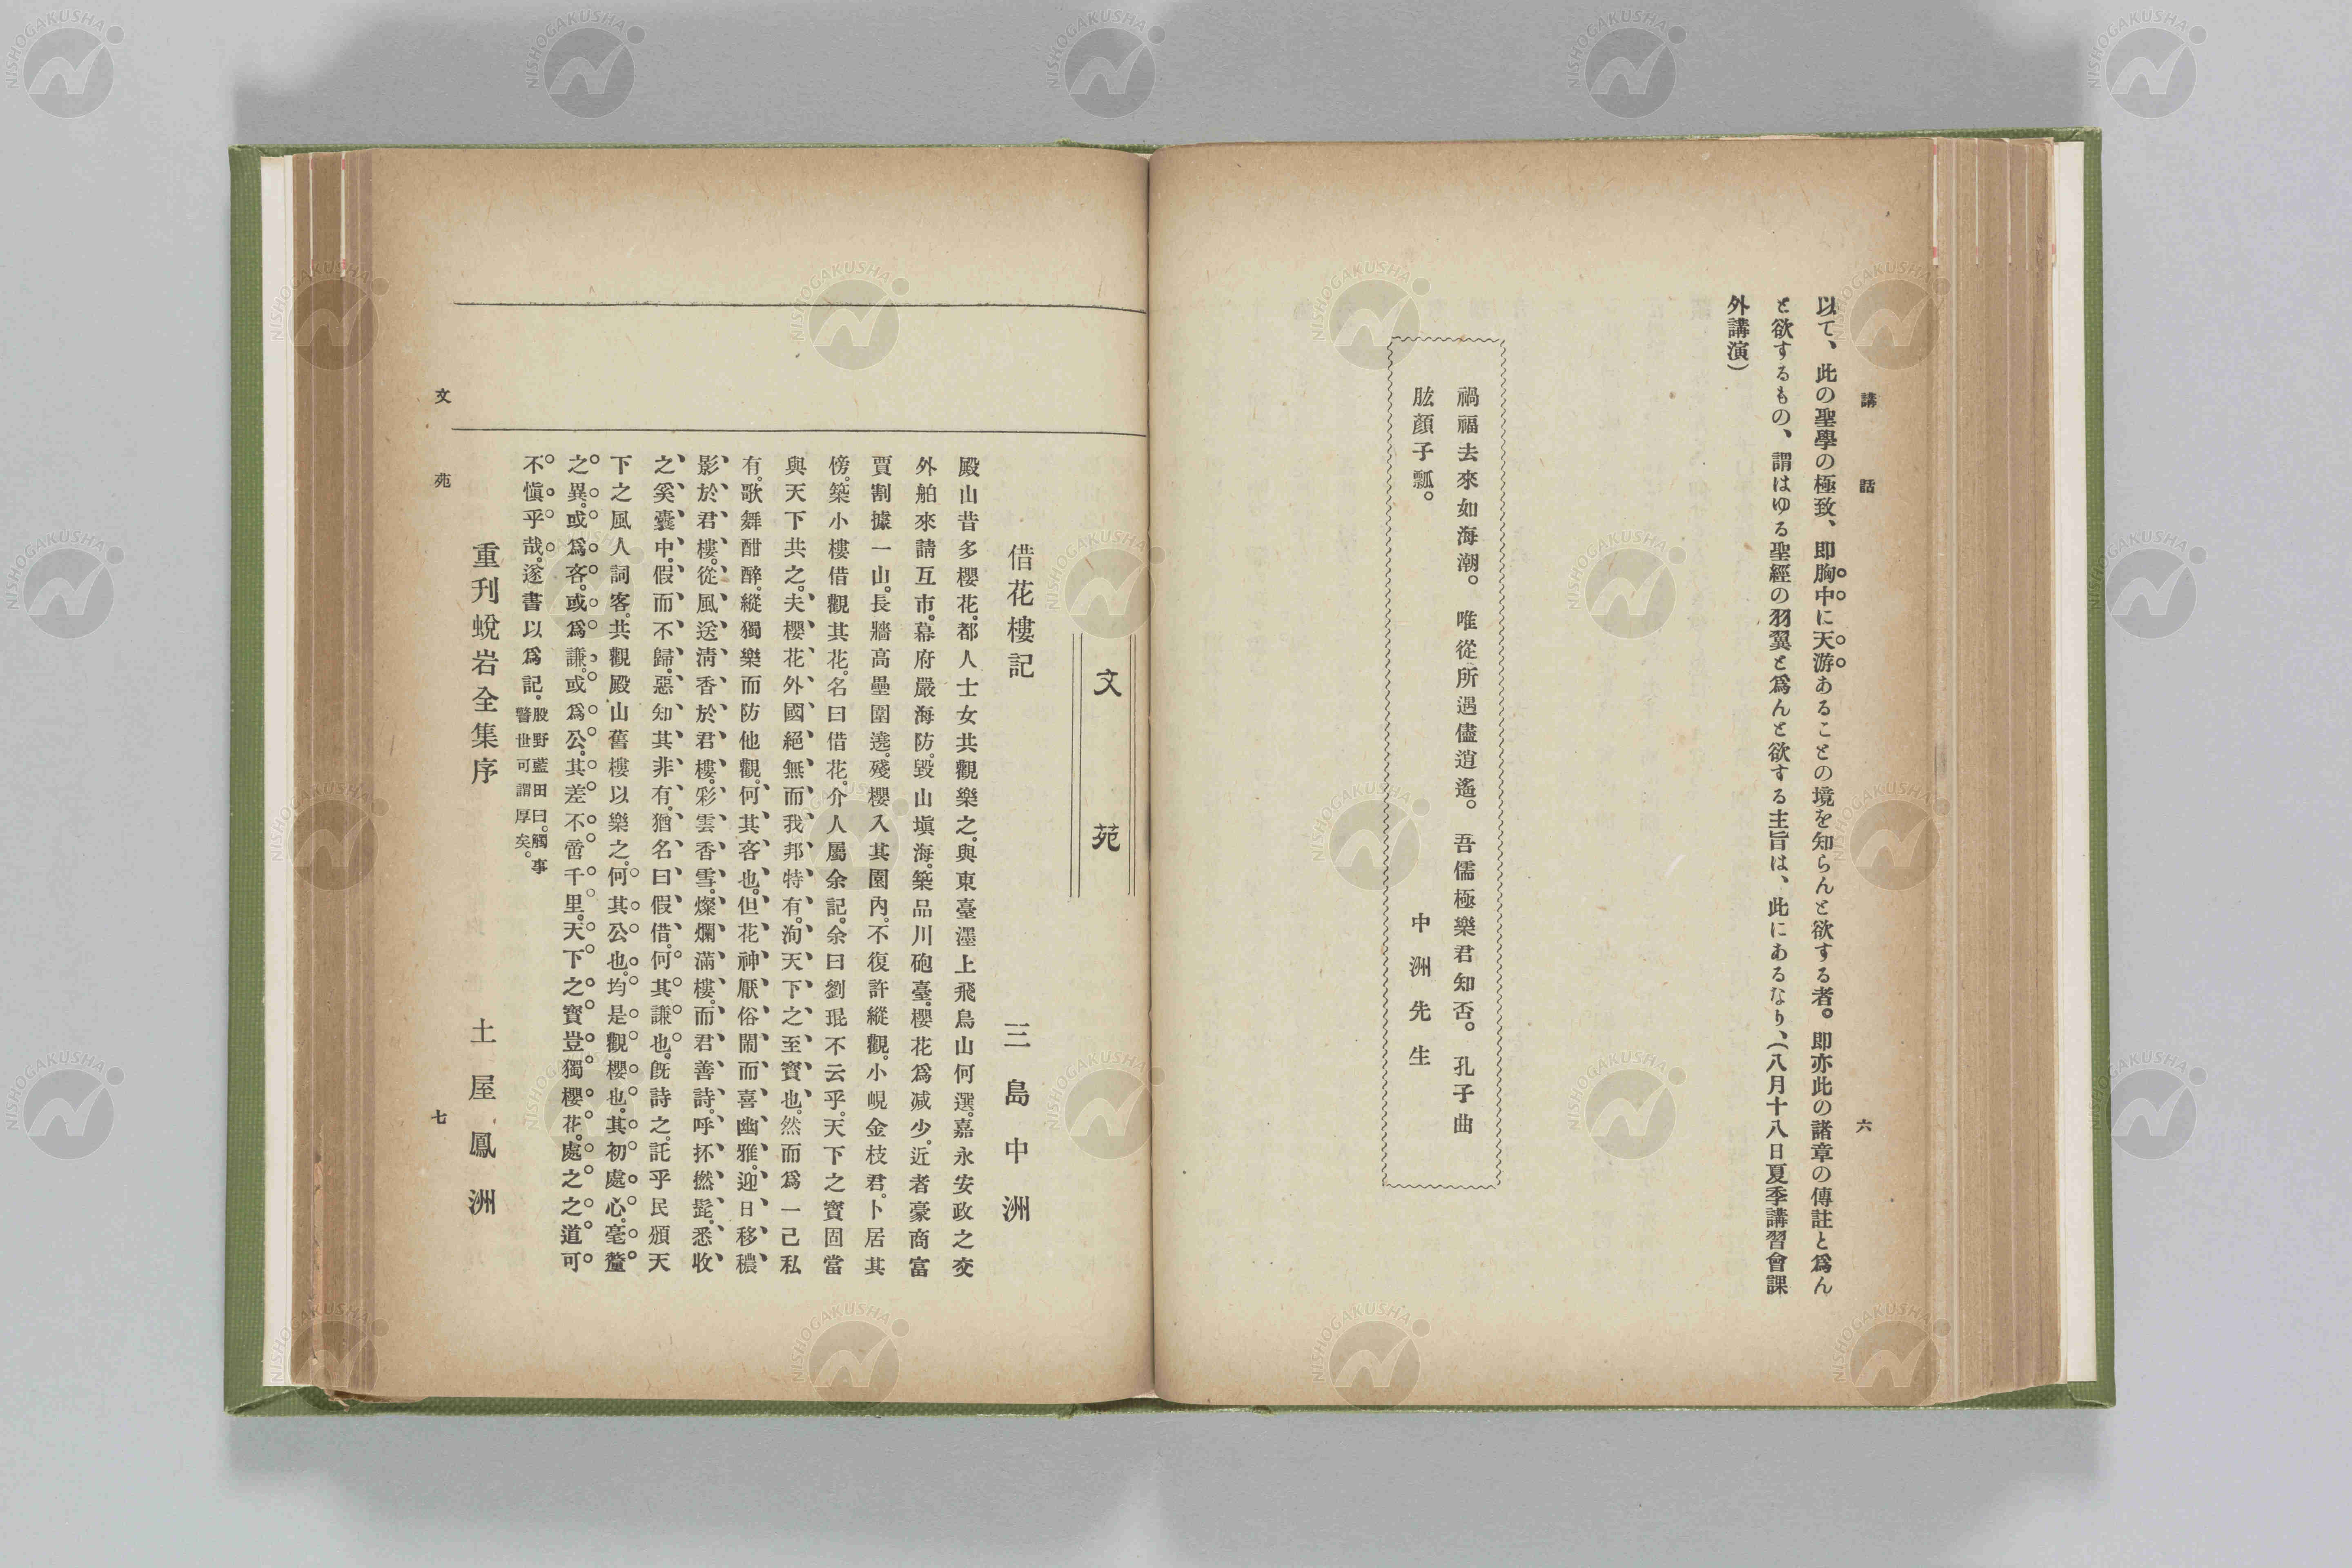 講話
六
以て、此の聖學の極致、卽胸中に天游あることの境を知らんと欲する者。卽亦此の諸章の傳註と爲ん
と欲するもの、謂はゆる聖經の羽翼と爲んと欲する主旨は、此にあるなり、(八月十八日夏季講習會課
外講演)
禍福去來如海潮。唯從所遇儘逍遙。吾儒極樂君知否。孔子曲
肱顏子瓢。
中洲先生
文苑
借花樓記
三島中洲
殿山昔多櫻花。都人士女共觀樂之。與東臺濹上飛鳥山何選。嘉永安政之交
外舶來請互市。幕府嚴海防。毀山塡海。築品川砲臺。櫻花爲減少。近者豪商富
賈割據一山。長牆高壘圍遶。殘櫻入其園內。不復許縱觀。小峴金枝君。卜居其
傍。築小樓借觀其花。名曰借花。介人屬余記。余曰劉琨不云乎。天下之寶固當
與天下共之。夫櫻花外國絕無而我邦特有。洵天下之至寶也。然而爲一己私
有。歌舞酣醉。縱獨樂而防他觀。何其吝也。但花神厭俗鬧而喜幽雅。迎日移穠
影於君樓。從風送淸香於君樓。彩雲香雪。燦爛滿樓。而君善詩。呼抔撚髭。悉收
之奚囊中。假而不歸。惡知其非有。猶名曰假借。何其謙也。旣詩之。託乎民頒天
下之風人詞客。共觀殿山舊樓以樂之。何其公也。均是觀櫻也。其初處心。毫釐
之異。或爲客。或爲謙。或爲公。其差不啻千里。天下之寶豈獨櫻花。處之之道可
不愼乎哉。遂書以爲記。股野藍田曰。觸事
警世可謂厚矣。
重刊蛻岩全集序
土屋鳳洲
文苑
七
NISHOGAKUSHA